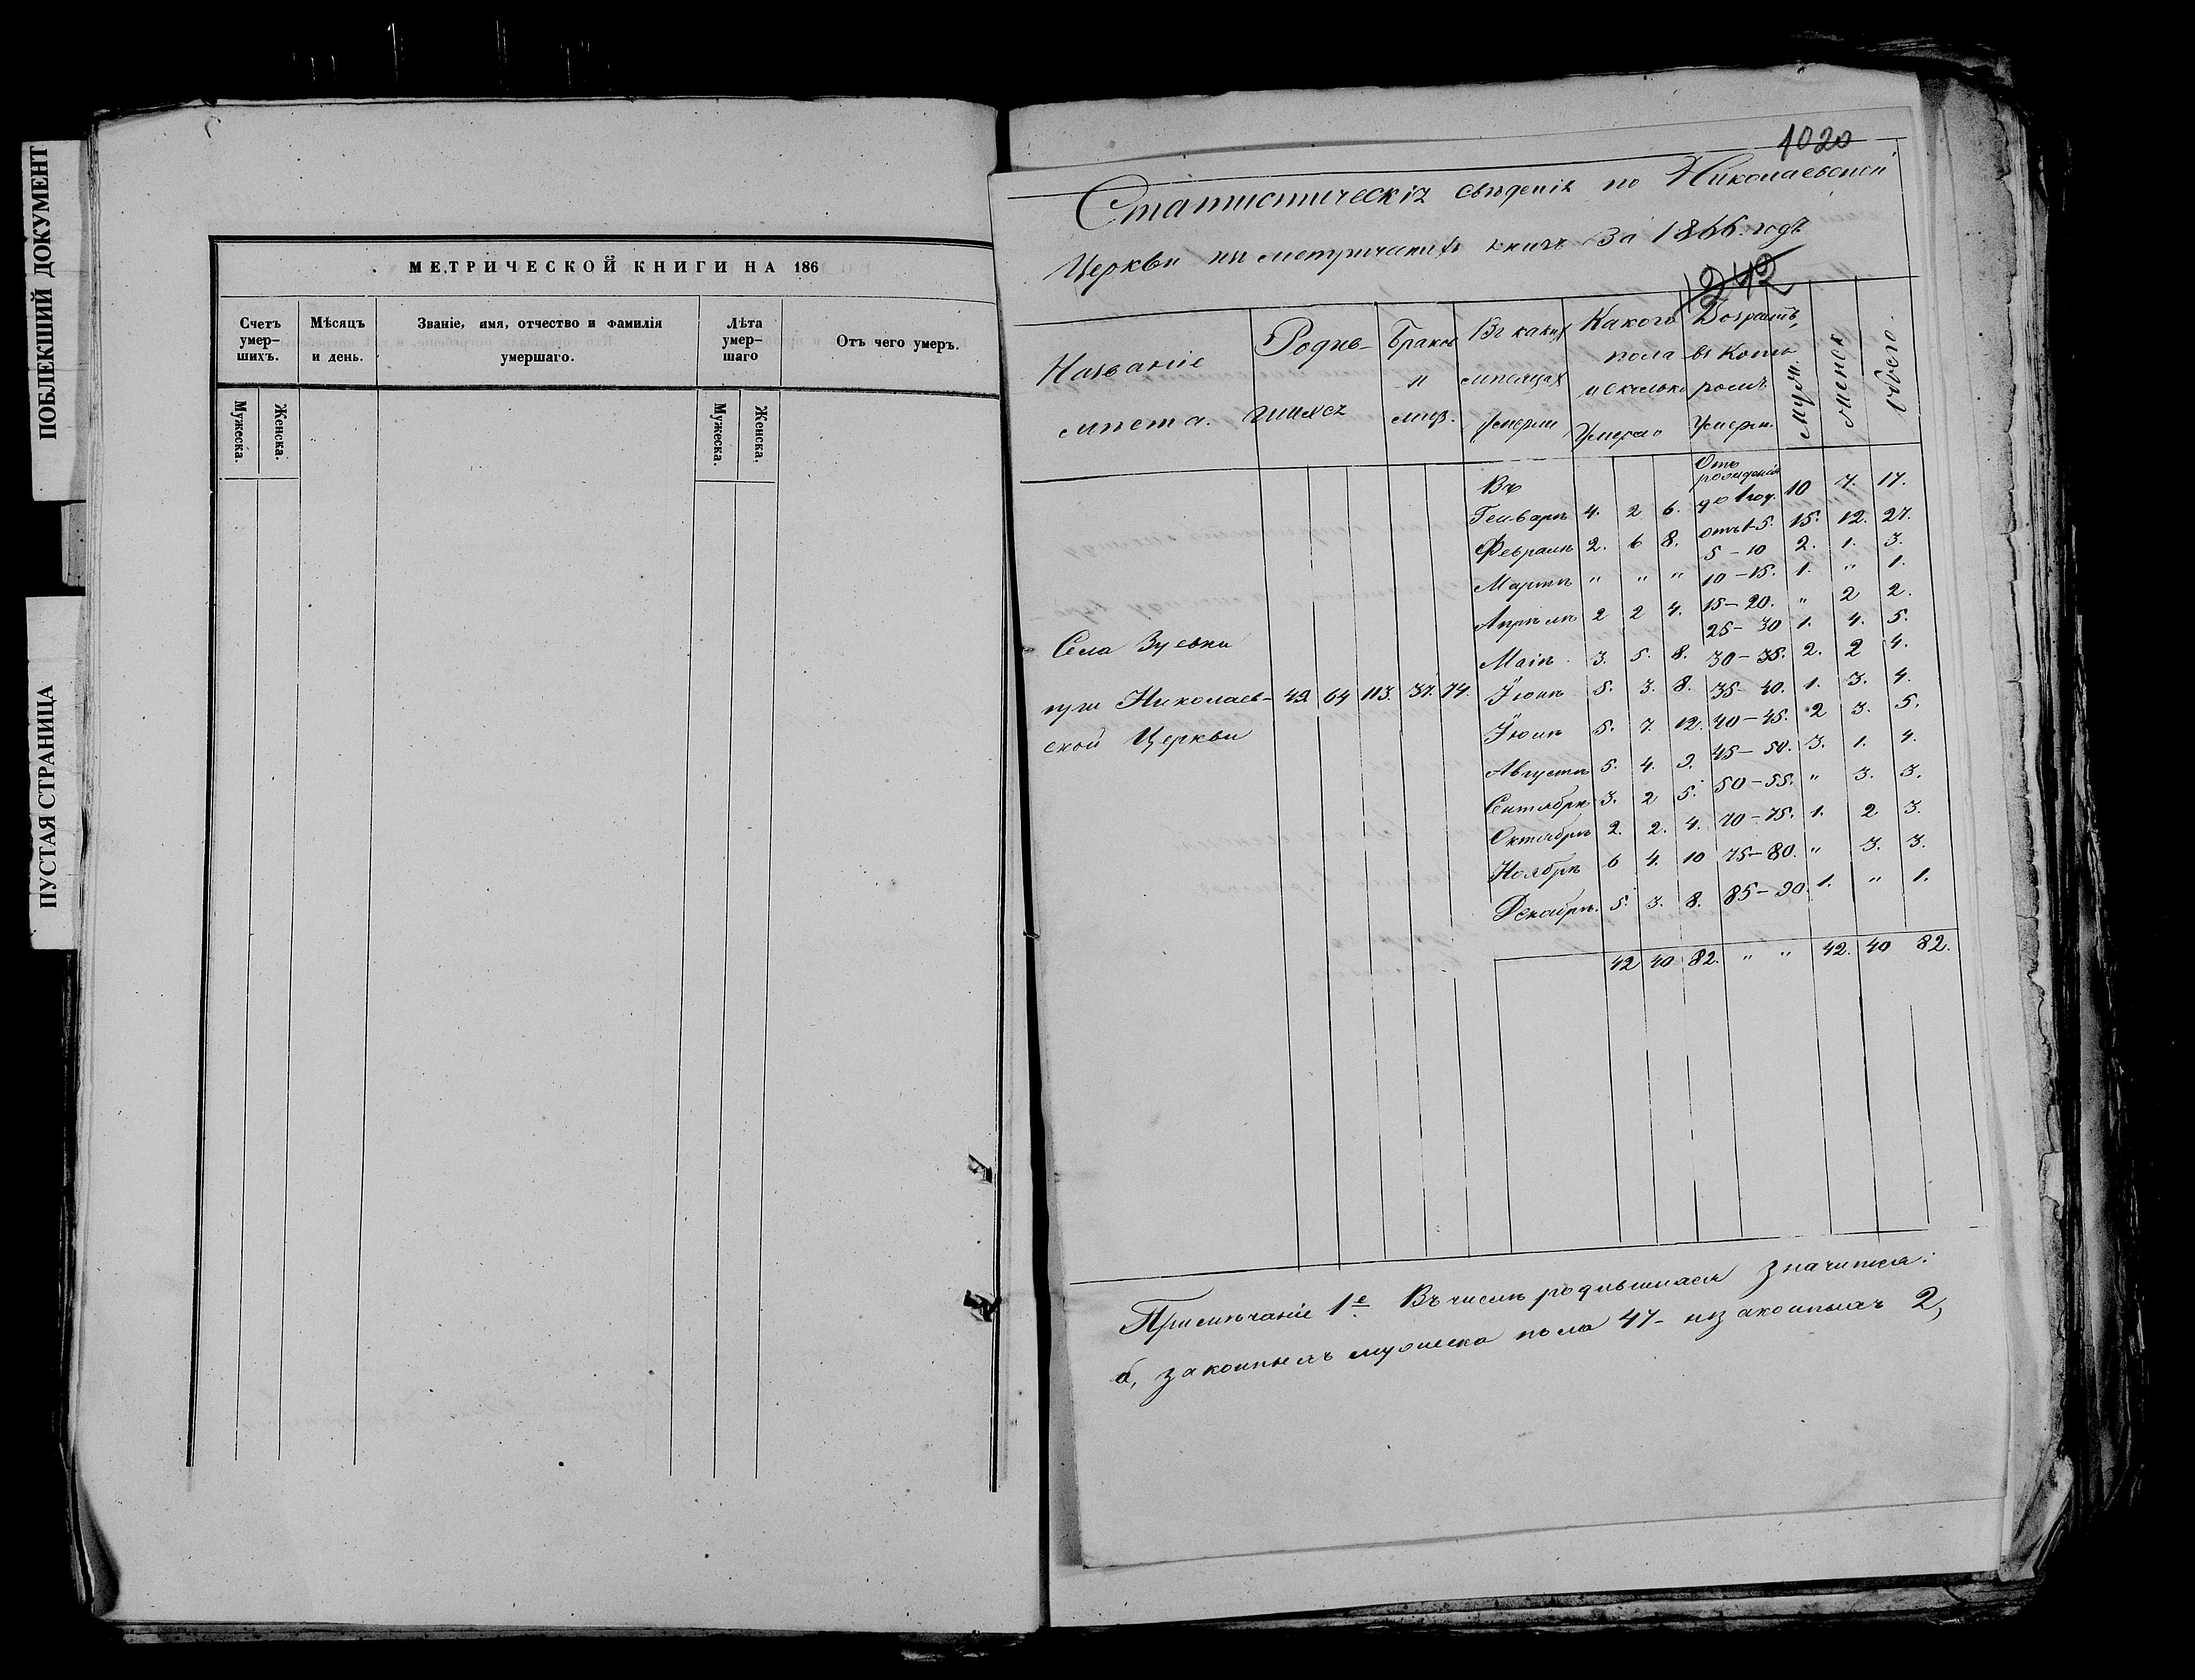 ПОБЛЕКШИЙ ДОКУМЕНТ
ПУСТАЯ СТРАНИЦА
МЕТРИЧЕСКОЙ КНИГИ НА 186
Счетъ умер-шихъ.
Мѣсяцъ и день.
Званіе, имя, отчество и фамилія умершаго.
Лѣта умер-шаго
Отъ чего умеръ.
Мужеска.
Женска.
Мужеска.
Женска.
1020
Статистическія свѣденія по Николаевской
Церкви въ метрическихъ книгъ за 1866. годъ
1242
Названіе мѣста.
Родив-шихся
Браковъ
Въ какихъ мѣсяцахъ умерли
Какого пола и сколько умерло
Возрастъ, въ кото-ромъ умерли.
муж.
женск
обоего.
Въ
Генварѣ 4. 2 6. Отъ рожденія до 1 год. 10 7. 17.
Февралѣ 2. 6 8. отъ 1-5. 15. 12. 27.
5 - 10 2. 1. 3.
Мартѣ " " " 10 - 15. 1. " 1.
Апрѣлѣ 2 2 4. 15 - 20. " 2 2.
25 - 30 1. 4. 5.
Села Зуевки
Маіѣ 3. 5. 8. 30 - 35. 2. 2 4.
при Николаев- 49 64 113. 37. 74. Іюнѣ 5. 3. 8. 35 - 40. 1. 3. 4.
ской Церкви
Іюлѣ 5. 7. 12. 40 - 45. 2 3. 5.
45 - 50. 3. 1. 4.
Августѣ 5. 4. 9.
50 - 55. " 3. 3.
Сентябрѣ 3. 2 5.
Октябрѣ 2. 2. 4. 70 - 75. 1. 2 3.
Ноябрѣ 6 4. 10 75 - 80. " 3. 3.
Декабрѣ. 5. 3. 8. 85 - 90. 1. " 1.
42 40 82. " " 42. 40 82.
Примѣчаніе 1е. Въ числѣ родившихся значится:
а, законныхъ мужеска пола 47 - незаконныхъ 2,